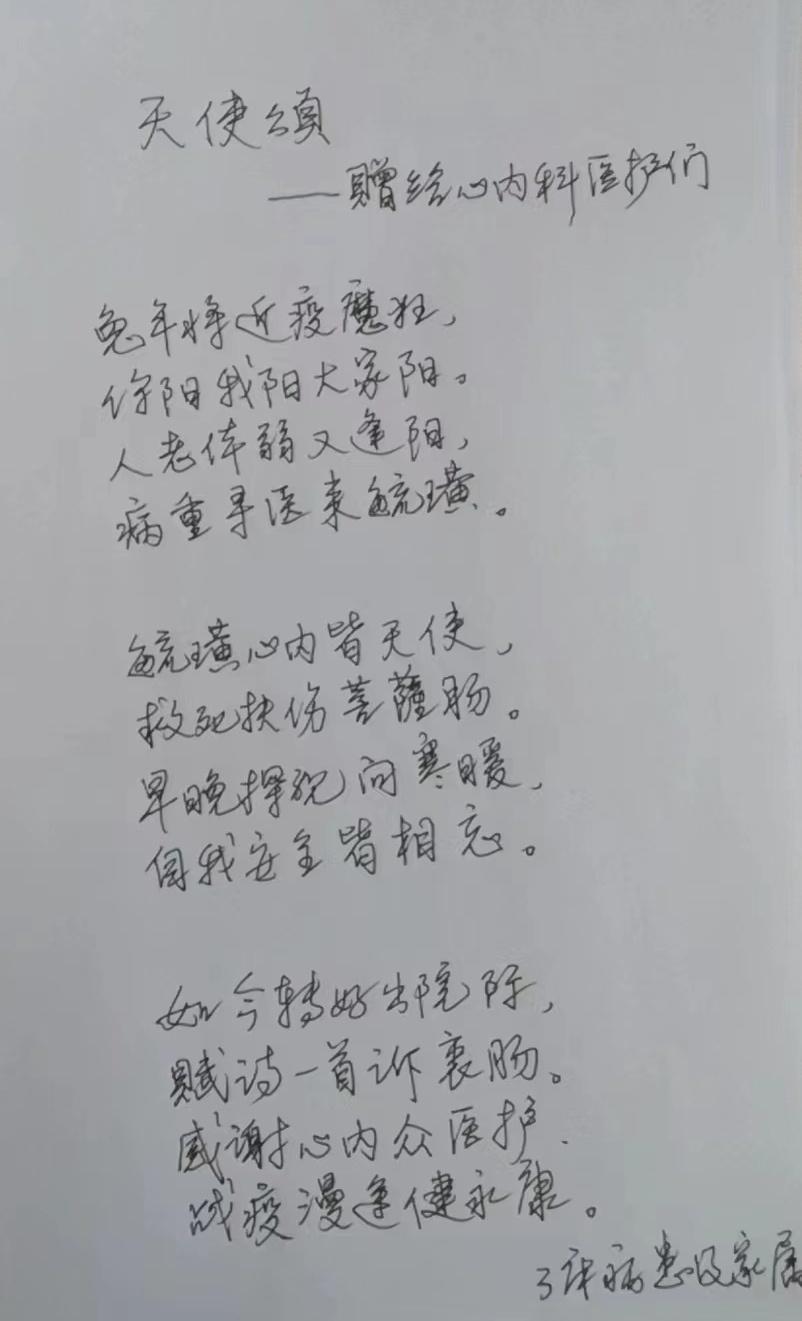 天使颂
——赠给心内科医护们
兔年将近疫魔狂，
你阳我阳大家阳。
人老体弱又逢阳，
病重寻医来毓璜。
毓璜心内皆天使，
救死扶伤菩萨肠。
早晚探视问寒暖，
个人安全皆相忘。
如今转好出院际，
赋诗一首诉衷肠。
感谢心内众医护
战疫漫途健永康。
3床病患及家属